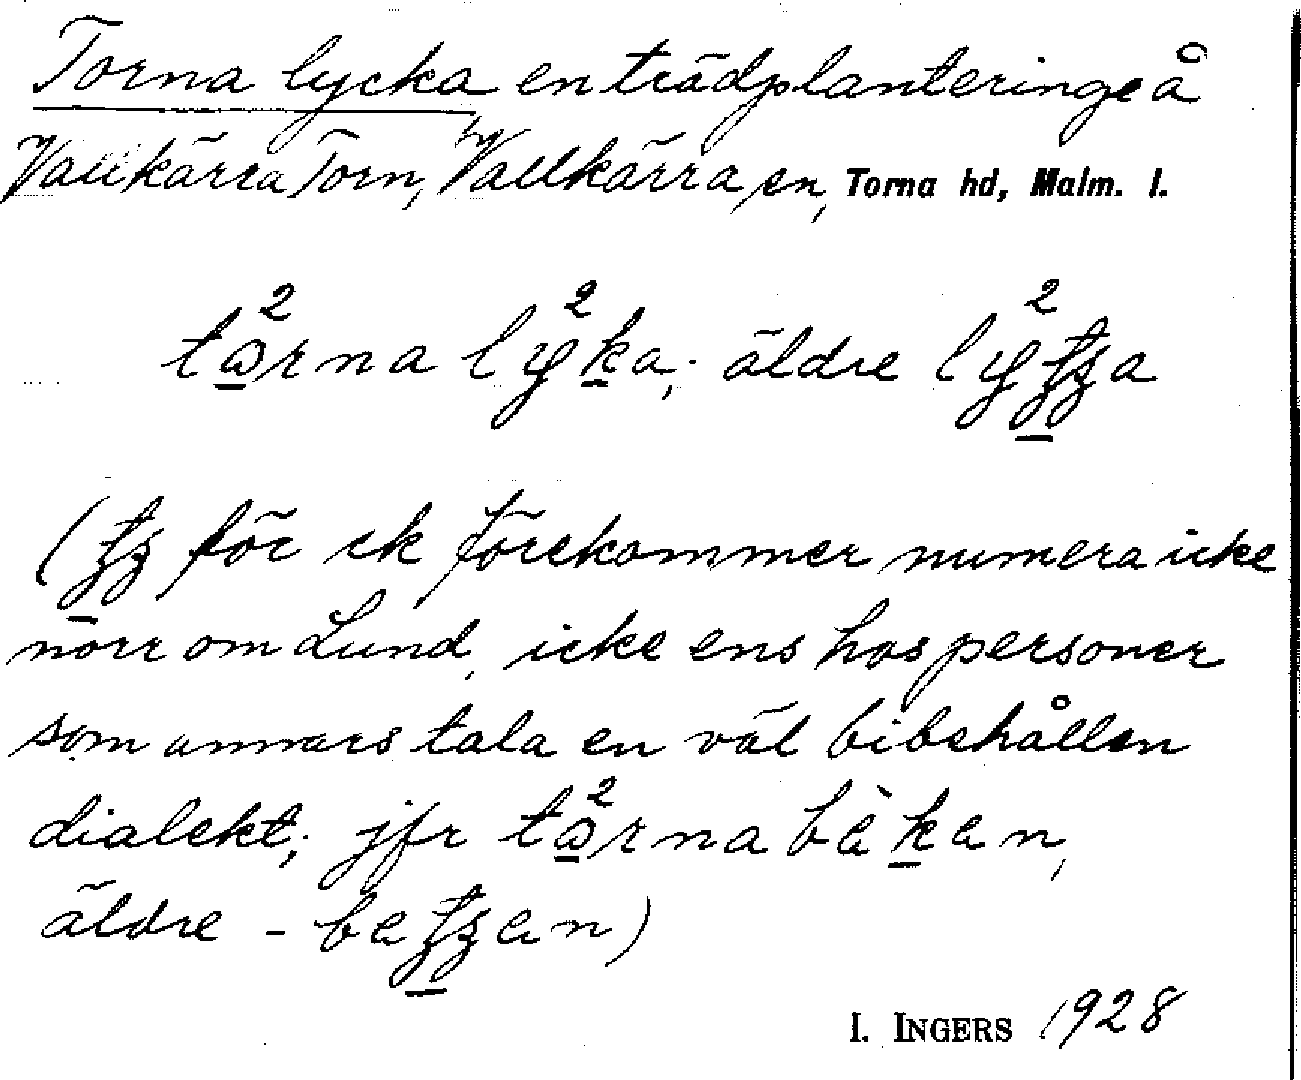 Torna lycka en trädplantering å
Vallkärra Torn, Vallkärra sn, Torna hd, Malm. l.
tɷ²rna ly²ka, äldre ly²ʈʐa
(ʈʐ för ck förekommer numera icke
norr om Lund, icke ens hos personer
som annars tala en väl bibehållen
dialekt; jfr tɷ²rna bèken,
äldre - beʈʐen)
I. INGERS 1928